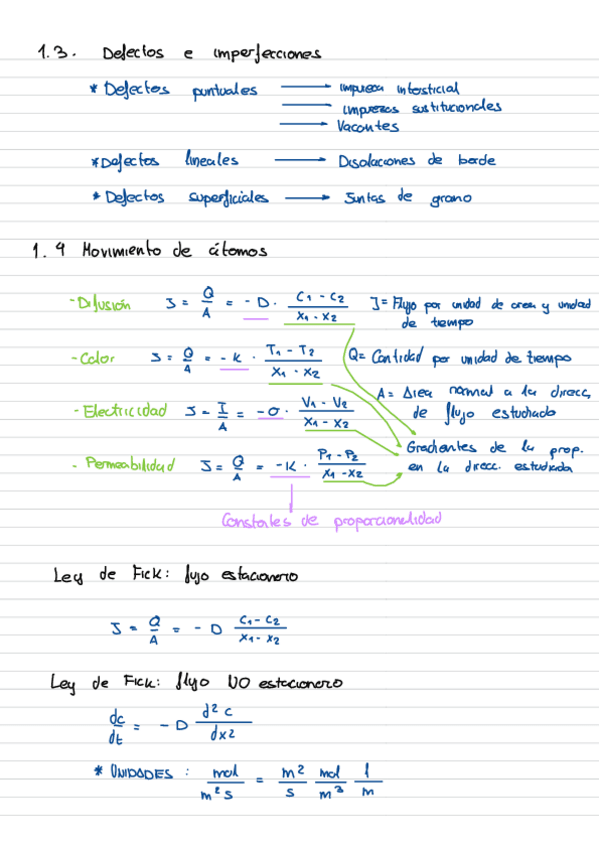 1.3. Defectos e imperfecciones
* Defectos puntuales → impureza intersticial
→ impurezas sustitucionales
→ Vacantes
* Defectos lineales → Disolaciones de borde
* Defectos superficiales → Juntas de grano
1.4 Movimiento de átomos
- Difusión J = Q/A = - D · (C1 - C2)/(x1 - x2) J = Flujo por unidad de area y unidad de tiempo
- Calor J = Q/A = - K · (T1 - T2)/(x1 - x2) Q = Cantidad por unidad de tiempo
- Electricidad J = I/A = - σ · (V1 - V2)/(x1 - x2) A = Area normal a la direcc, de flujo estudiado
- Permeabilidad J = Q/A = - K · (P1 - P2)/(x1 - x2) Gradientes de la prop. en la direcc. estudiada
Constates de proporcionalidad
Ley de Fick: flujo estacionero
J = Q/A = - D (C1 - C2)/(x1 - x2)
Ley de Fick: flujo NO estacionero
dc/dt = - D d²c/dx2
* UNIDADES : mol/m²s = m²/s mol/m³ 1/m